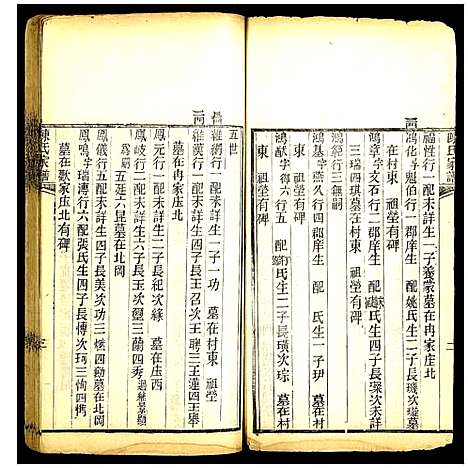 陳氏家譜
福性行一配未詳生一子養蒙墓在冉家庄北
鴻化字魁伯行一郡庠生 配姚氏生二子
在村東 祖塋有碑
鴻章字文石行二郡庠生 配 氏生二子長璨次
三瑞四琪墓在村東 祖塋有碑
鴻範行三無嗣
鴻基字燕久行四郡庠生 配 氏生一子玶 墓在村
東 祖塋有碑
鴻猷字得六行五 配 氏生二子長璜次琮 墓在村
東 祖塋有碑
二
五世
維綱行一配未詳生一子一功 墓在村東 祖塋
維漢行二配未詳生四子長王召次王聘三王蓮四王
墓在冉家庄北
鳳元行一配未詳生二子長紀次綠 墓在庄西
鳳岐行二配未詳生六子長五玉次 三蘭四秀
為嗣五廷六昆墓在北岡
鳳儀行五配未詳生四子長美次功三 四勷墓在北岡
鳳鳴字瑞溥行六配張氏生四子長博次珂三恂四檇
墓在歡家庄北有碑
陳氏家譜
三